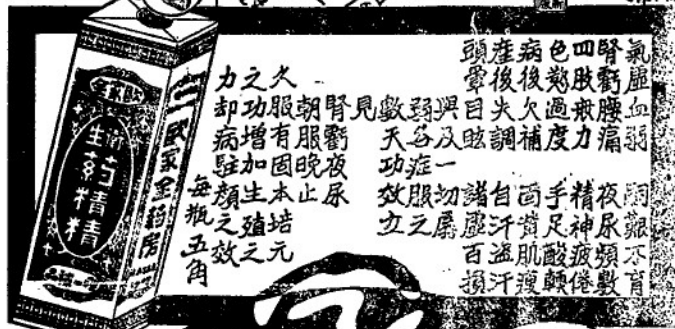 氣虛血弱 嗣艱不育
腎虧腰痛 夜尿頻數
四肢痠力 精神疲倦
色慾過度 手足酸軟
病後欠補 面黃肌瘦
產後失調 自汗盜汗
頭暈目眩 諸虛百損
與及一切羸
弱各症服之
數天功效立
見
腎虧夜尿
朝服晚止
久服有固本培元
之功增加生殖之
力却病駐顏之效
每瓶五角
歐家全药房
歐家全
衛生
药精精